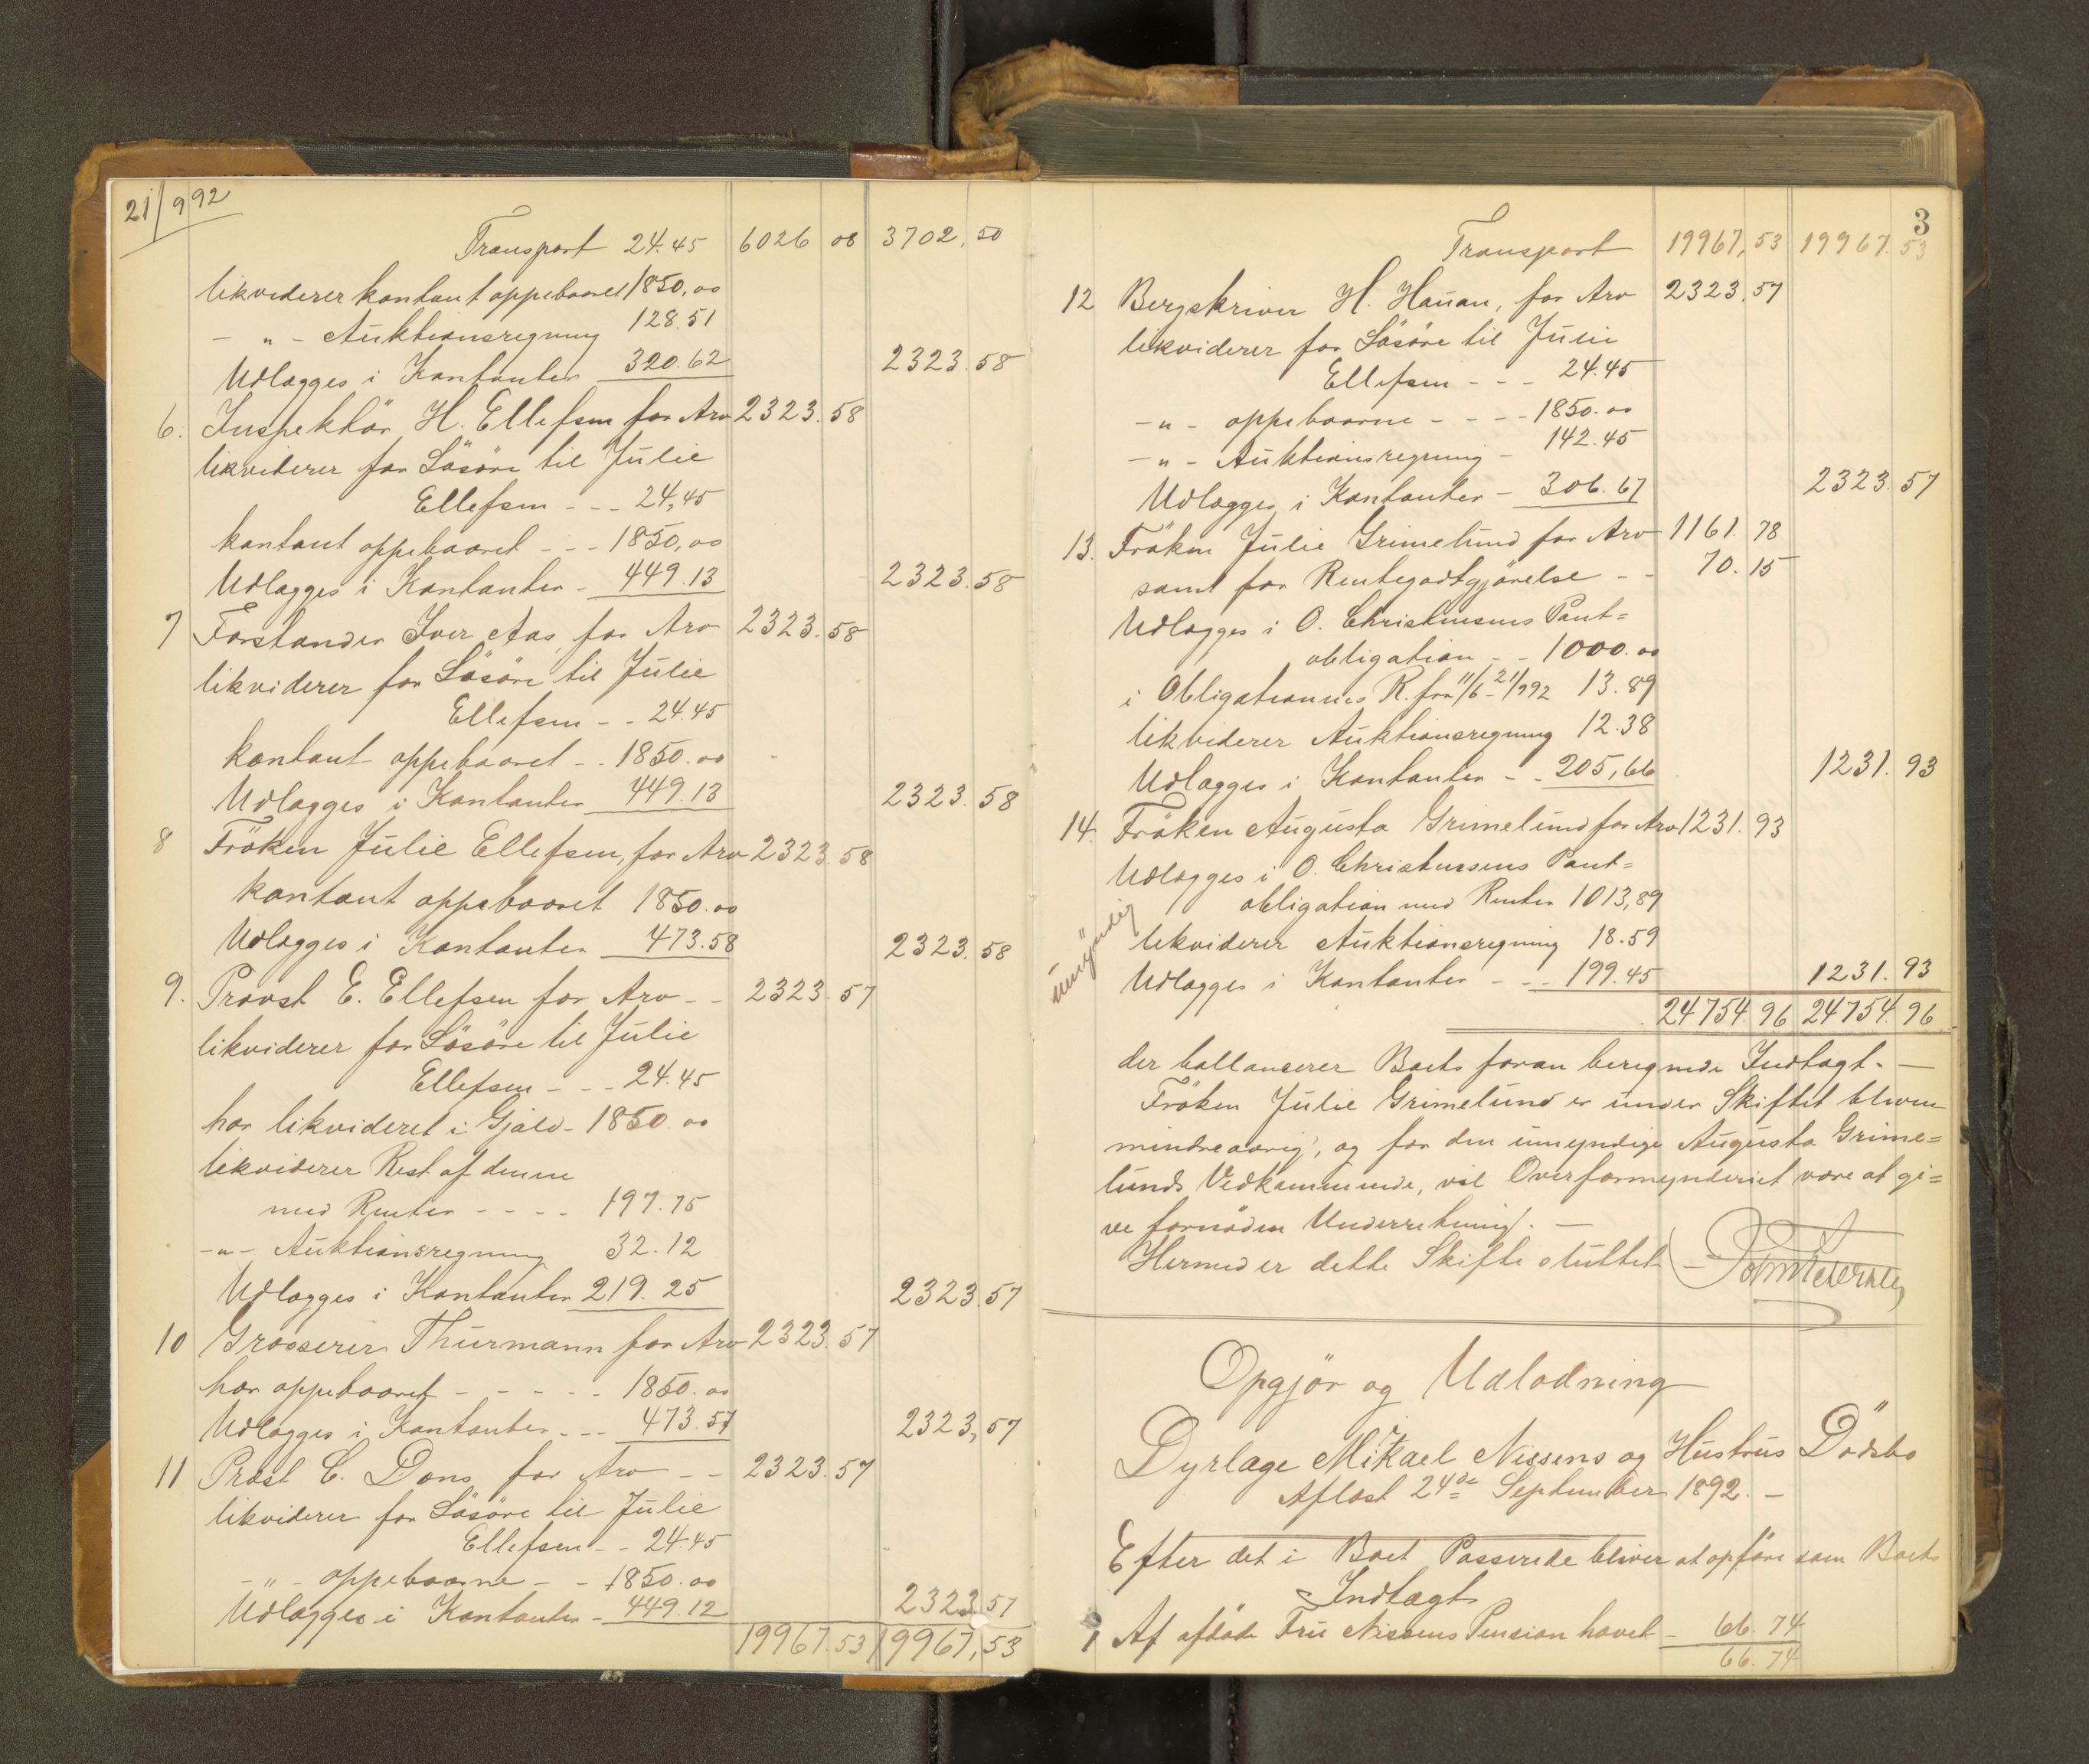 21/9 92
Transport 24.45 6026 08 3702,50
likviderer kontant oppebaaret 1850,00
- " - Auktionsregning 128.51
Udlægges i Kontanter 320.62 2323.58
6. Inspektör H. Ellefsen for Arv 2323.58
likviderer for Lösöre til Julie
Ellefsen - - - 24,45
kontant oppebaaret - - - 1850,00
Udlægges i Kontanter - 449.13 2323.58
7 Forstander Iver Aas, for Arv 2323.58
likviderer for Lösöre til Julie
Ellefsen - - 24.45
kontant oppebaaret - - 1850.00
Udlægges i Kontanter 449.13 2323.58
8 Fröken Julie Ellefsen, for Arv 2323.58
kontant oppebaaret 1850.00
Udlægges i Kontanter 473.58 2323.58
9. Provst E. Ellefsen for Arv - - 2323.57
likviderer for Lösöre til Julie
Ellefsen - - - 24.45
har likvideret i Gjæld - 1850.00
likviderer Rest af denne
med Renter - - - - 197.75
- " - Auktionsregning 32.12
Udlægges i Kontanter 219.25 2323.57
10 Grosserer Thurmann for Arv 2323.57
har oppebaaret - - - - - 1850.00
Udlægges i Kontanter - - - 473.57 2323,57
11 Præst C. Dons for Arv - - 2323.57
likviderer for Lösöre til Julie
Ellefsen - - 24.45
- " - oppebaarne - - 1850.00
Udlægges i Kontanter - 449.12 2323.57
19967.53 19967,53
3
Transport 19967,53 19967.53
12 Bergskriver H. Hauan, for Arv 2323.57
likviderer for Lösöre til Julie
Ellefsen - - - 24.45
- " - oppebaarne - - - - 1850.00
- " - Auktionsregning - 142.45
Udlægges i Kontanter - 306.67 2323.57
13. Fröken Julie Grimelund for Arv 1161.78
samt for Rentegodtgjörelse - - 70.15
Udlægges i O. Christensens Pant=
obligation - - 1000.00
i Obligationens R. fra 11/6 - 21/9 92 13.89
likviderer Auktionsregning 12.38
Udlægges i Kontanter - - 205,66 1231.93
14. Fröken Augusta Grimelund for Arv 1231.93
Udlægges i O. Christensens Pant=
obligation med Renter 1013,89
umyndig
likviderer Auktionsregning 18.59
Udlægges i Kontanter - - - 199.45 1231.93
24754.96 24754.96
der ballanserer Boets foran beregnede Indtægt. -
Fröken Julie Grimelund er under Skiftet bleven
mindreaarig, og for den umyndige Augusta Grime=
lunds Vedkommende, vil Overformynderiet være at gi=
ve fornöden Underretning. -
Hermed er dette Skifte sluttet
Opgjör og Udlodning
Dyrlæge Mikael Nissens og Hustrus Dödsbo
Aflæst 24de September 1892. -
Efter det i Boet Passerede bliver at opföre som Boets
Indtægt
1 Af afdöde Fru Nissens Pension hævet - 66.74
66.74